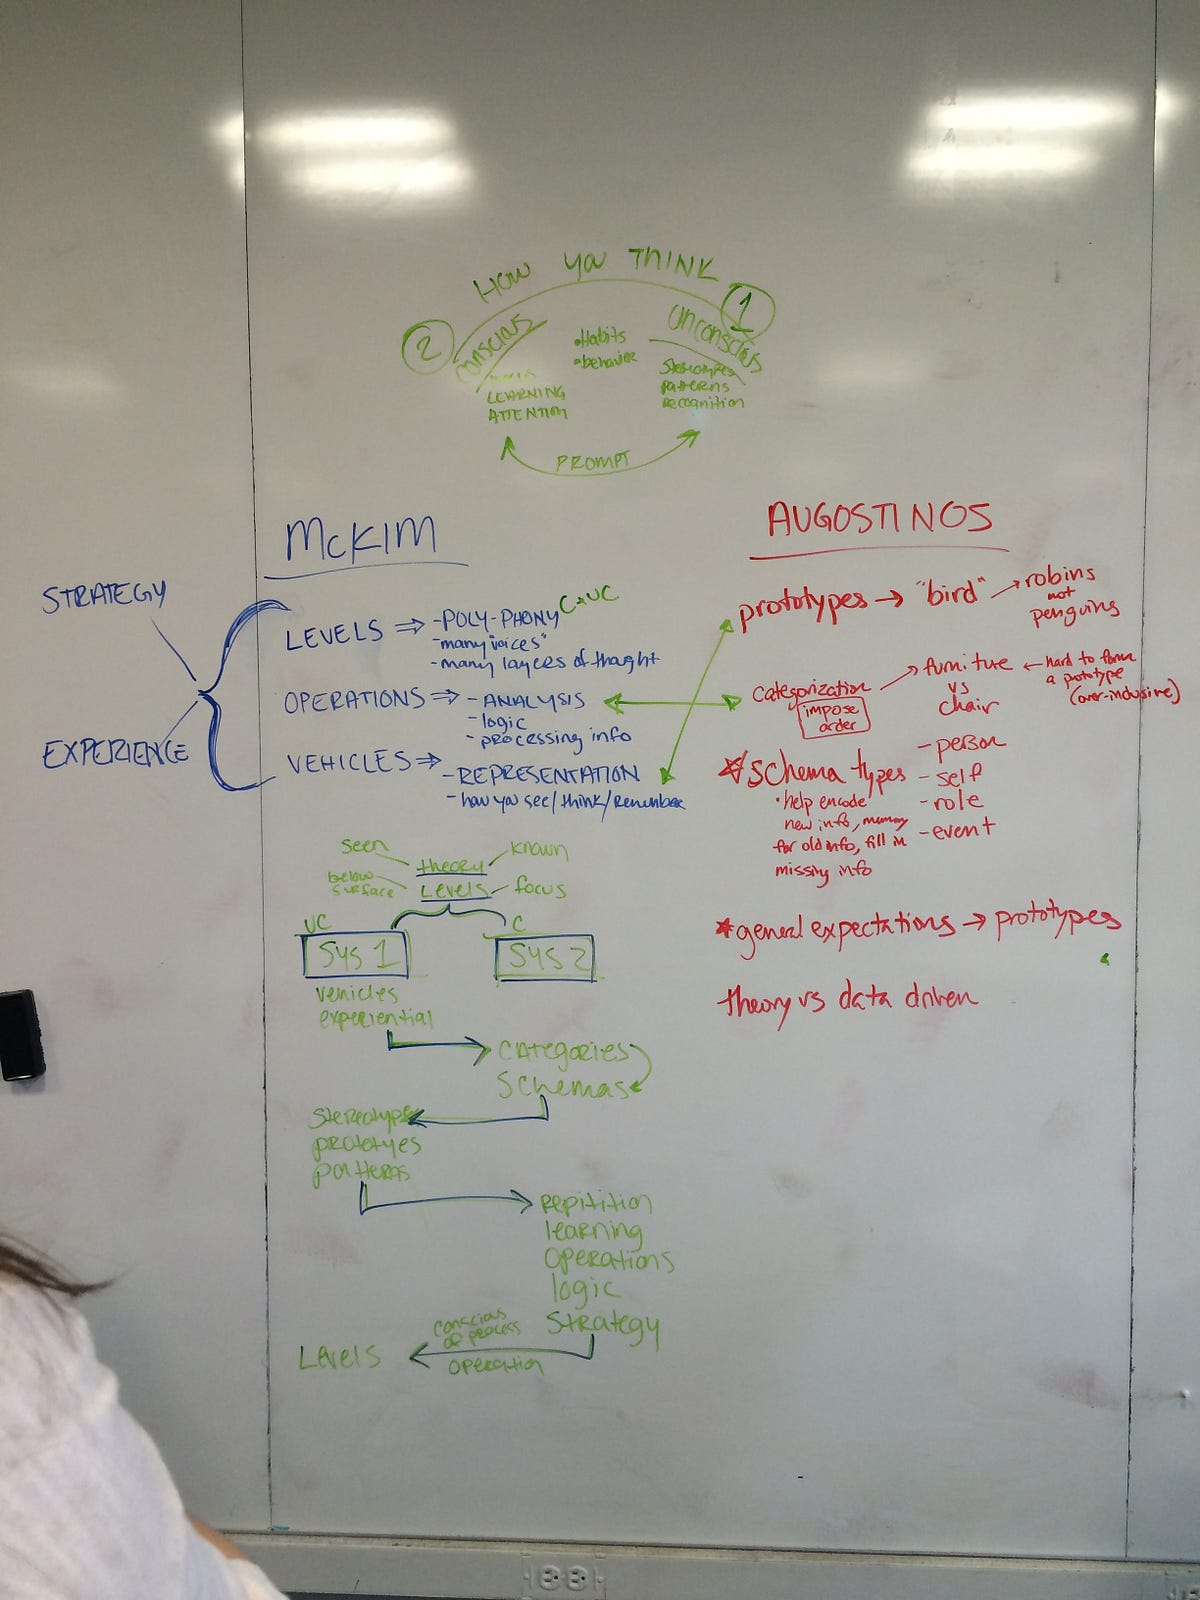 HOW YOU THINK
2
CONSCIOUS
LEARNING
ATTENTION
• Habits
• behavior
1
UNCONSCIOUS
Stereotypes
patterns
recognition
PROMPT
STRATEGY
EXPERIENCE
McKIM
LEVELS ⇒ - POLY-PHONY C+UC
- "many voices"
- many layers of thought
OPERATIONS ⇒ - ANALYSIS
- logic
- processing info
VEHICLES ⇒ - REPRESENTATION
- how you see/think/remember
AUGOSTINOS
prototypes → "bird" → robins
not
penguins
categorization → furniture ← hard to form
a prototype
(over-inclusive)
vs
chair
impose
order
schema types
• help encode
new info, memory
for old info, fill in
missing info
- person
- self
- role
- event
general expectations → prototypes
theory vs data driven
seen
theory
known
below
surface
Levels
focus
UC
C
SYS 1
SYS 2
vehicles
experiential
categories
schemas
Stereotypes
prototyes
patterns
repitition
learning
operations
logic
Strategy
conscious
of process
operation
Levels